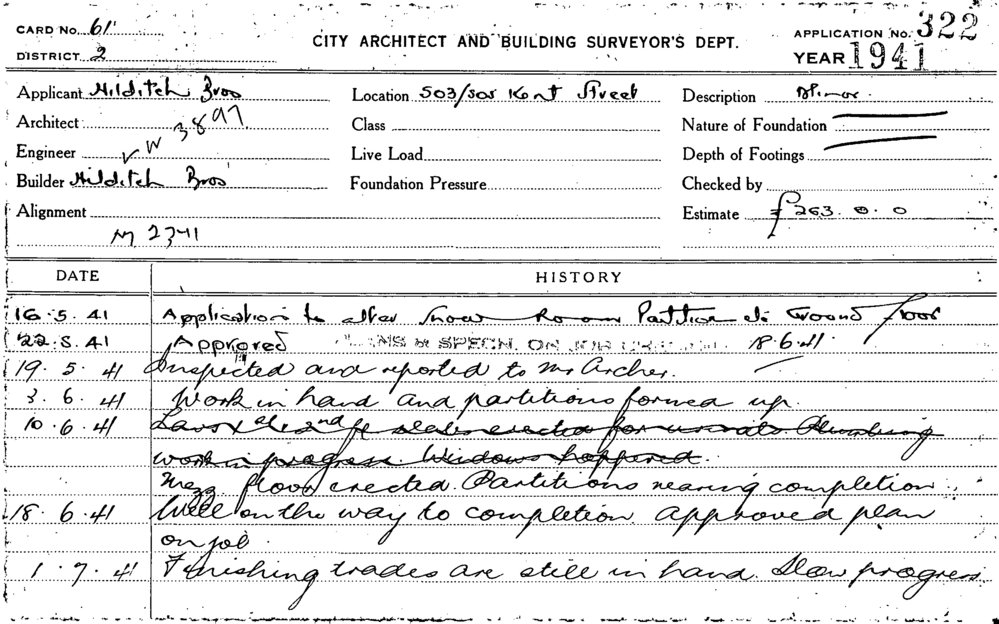 CARD No. 61
DISTRICT 2
CITY ARCHITECT AND BUILDING SURVEYOR'S DEPT.
APPLICATION No. 322
YEAR 1941
Applicant Hilditch Bros Location 503/505 Kent Street Description Minor
Architect Class Nature of Foundation
W 3897
Engineer Live Load Depth of Footings
Builder Hilditch Bros Foundation Pressure Checked by
Alignment Estimate £263. 0. 0
M 2341
DATE HISTORY
16.5.41 Application to alter Show Room Partition etc Ground floor
22.5.41 Approved PLANS & SPECN. ON JOB 18.6.41
19.5.41 Inspected and reported to Mr Archer.
3.6.41 Work in hand and partitions formed up.
10.6.41 2nd erected for urinals. Plumbing
work in progress. Windows hoppered.
Mezz floor erected. Partitions nearing completion.
18.6.41 Well on the way to completion. Approved plan
on job.
1.7.41 Finishing trades are still in hand. Slow progress